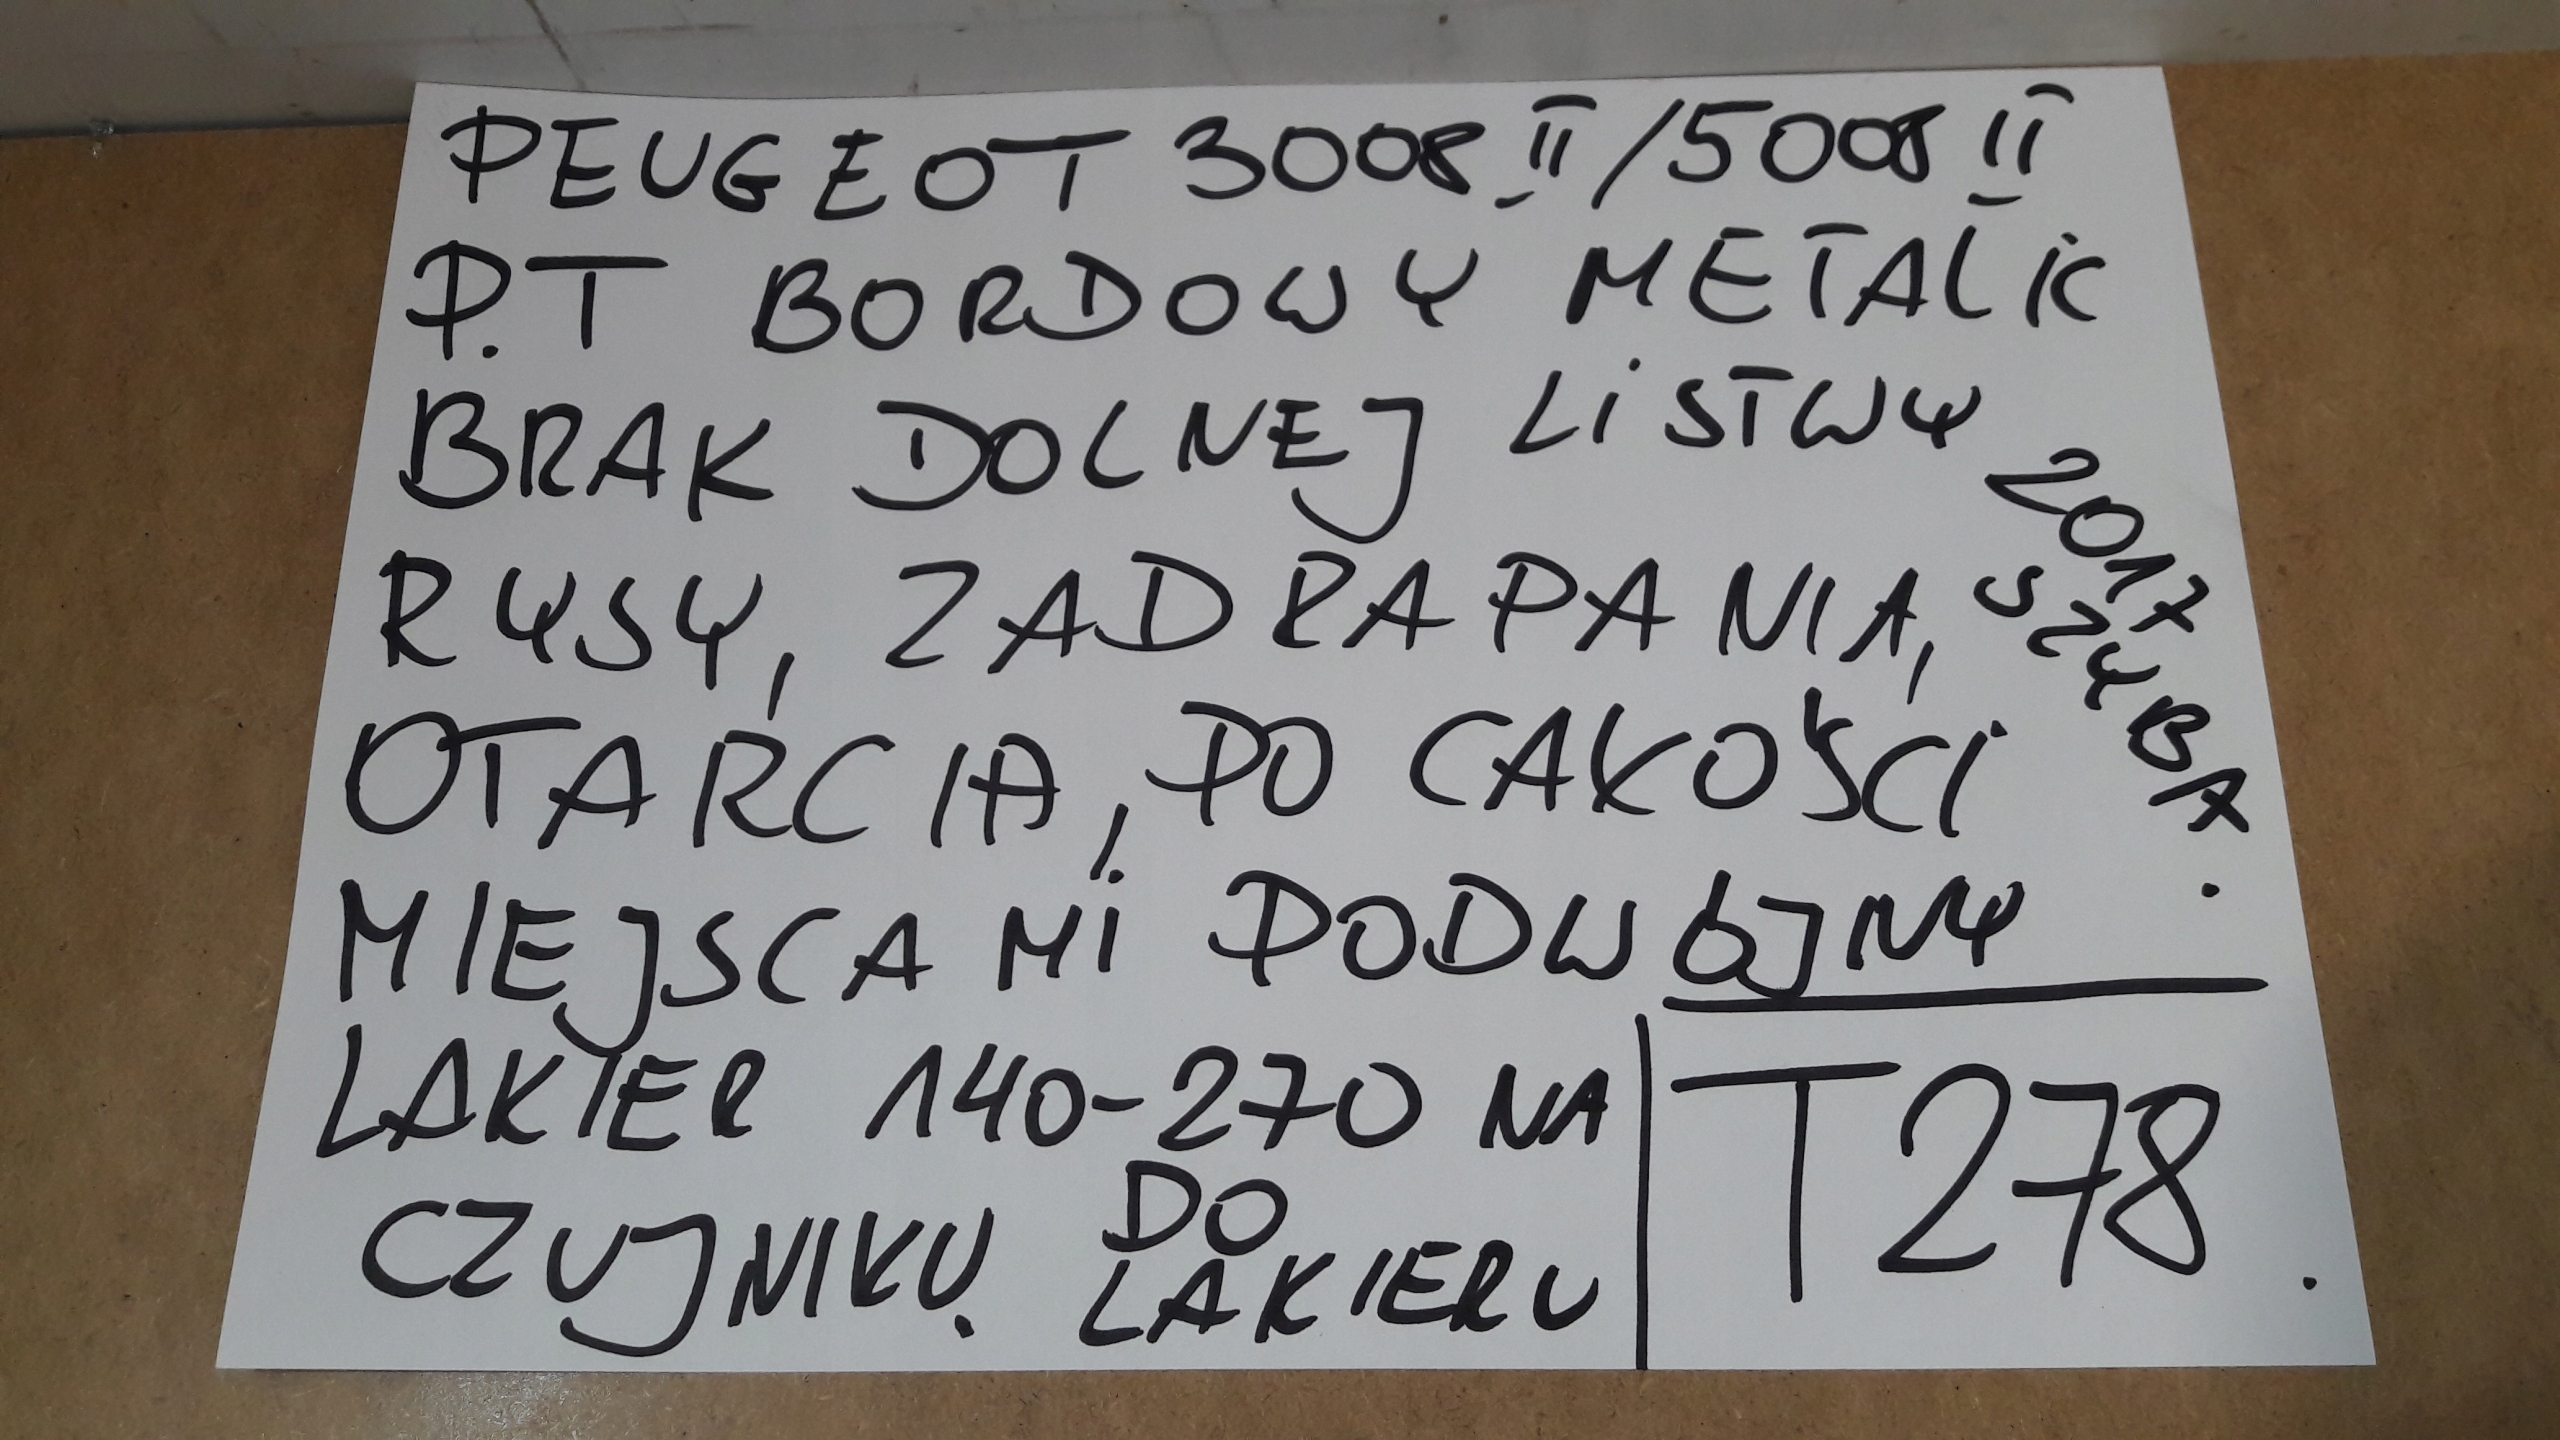 PEUGEOT 3008 II/5008 II
P.T BORDOWY METALIK
BRAK DOLNEJ LISTWY
2017
SZYBA.
RYSY, ZADRAPANIA,
OTARCIA, DO CAKOŚCI
MIEJSCAMI PODWÓJNY
LAKIER 140-270 NA
CZUJNIKU. DO
LAKIERU
T278.